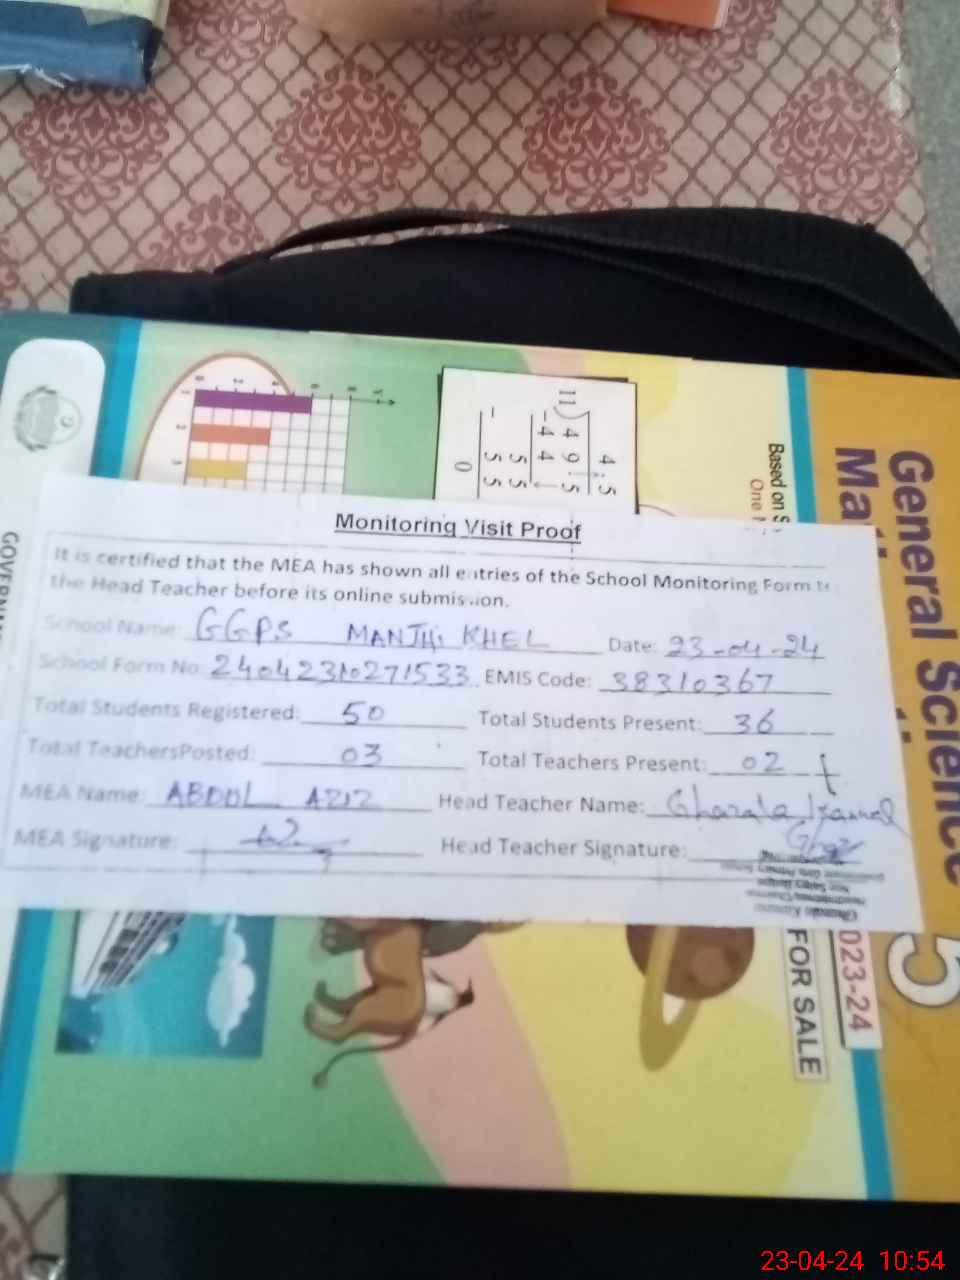 Monitoring Visit Proof
It is certified that the MEA has shown all entries of the School Monitoring Form to
the Head Teacher before its online submission.
School Name: GGPS MANJHI KHEL Date: 23-04-24
School Form No: 24042310271533 EMIS Code: 38310367
Total Students Registered: 50 Total Students Present: 36
Total TeachersPosted: 03 Total Teachers Present: 02
MEA Name: ABDUL AZIZ Head Teacher Name: Ghazala
MEA Signature: Head Teacher Signature:
General Science
Based on S
One
4.5
11) 49.5
-44
55
- 55
0
0 2 4 6 8 Y
1
2
3
5
023-24
FOR SALE
GOVERN
23-04-24 10:54